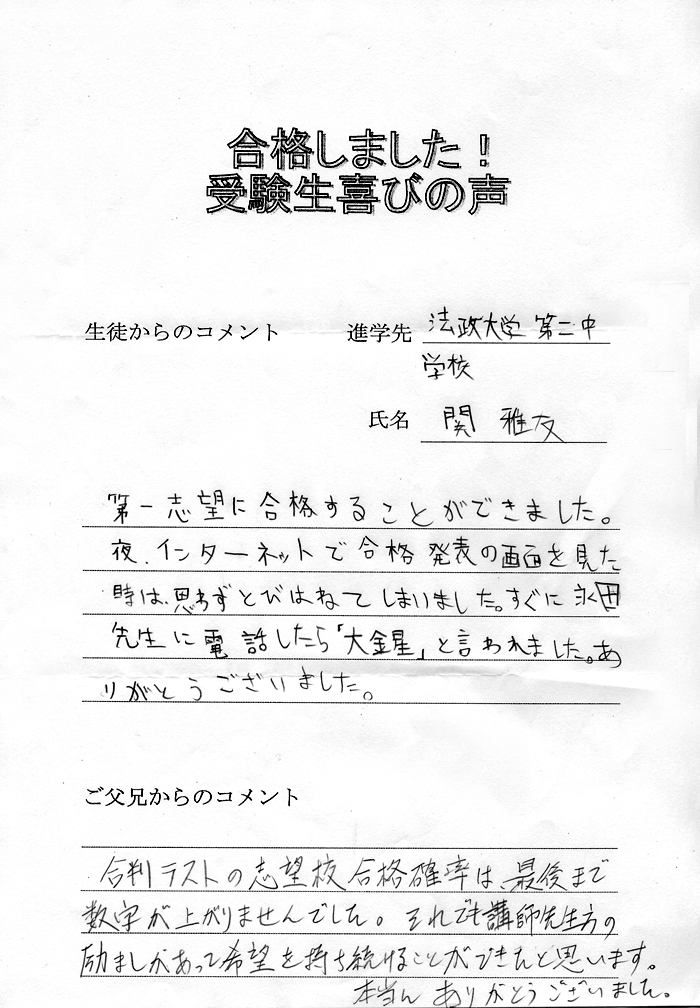 合格しました！
受験生喜びの声
生徒からのコメント 進学先 法政大学 第二中
学校
氏名 関 雅友
第一志望に合格することができました。
夜、インターネットで合格発表の画面を見た
時は、思わずとびはねてしまいました。すぐに永田
先生に電話したら「大金星」と言われました。あ
りがとうございました。
ご父兄からのコメント
合判テストの志望校合格確率は、最後まで
数字が上がりませんでした。それでも講師先生方の
励ましがあって希望を持ち続けることができたと思います。
本当にありがとうございました。